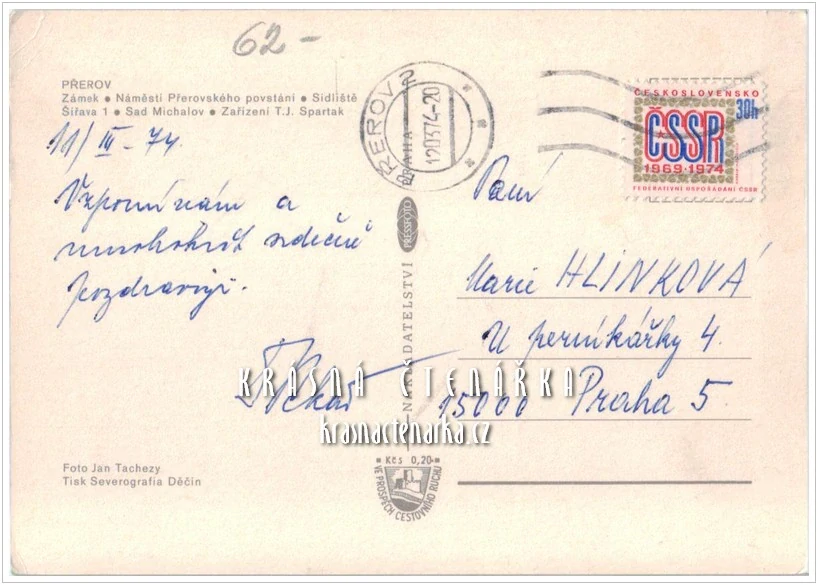 62-
PŘEROV
Zámek • Náměstí Přerovského povstání • Sídliště
Šířava 1 • Sad Michalov • Zařízení T.J. Spartak
PŘEROV 2
120374-20
ČESKOSLOVENSKO
30h
ČSSR
1969-1974
FEDERATIVNÍ USPOŘÁDÁNÍ ČSSR
11/III-74.
Vzpomínám a
mnohokrát srdečně
pozdravuji.
Paní
Marie HLINKOVÁ
U perníkářky 4.
15000 Praha 5.
PRAHA
PRESSFOTO
NAKLADATELSTVÍ
KRÁSNÁ ČTENÁŘKA
krasnactenarka.cz
Foto Jan Tachezy
Tisk Severografia Děčín
Kčs 0,20
VE PROSPĚCH CESTOVNÍHO RUCHU